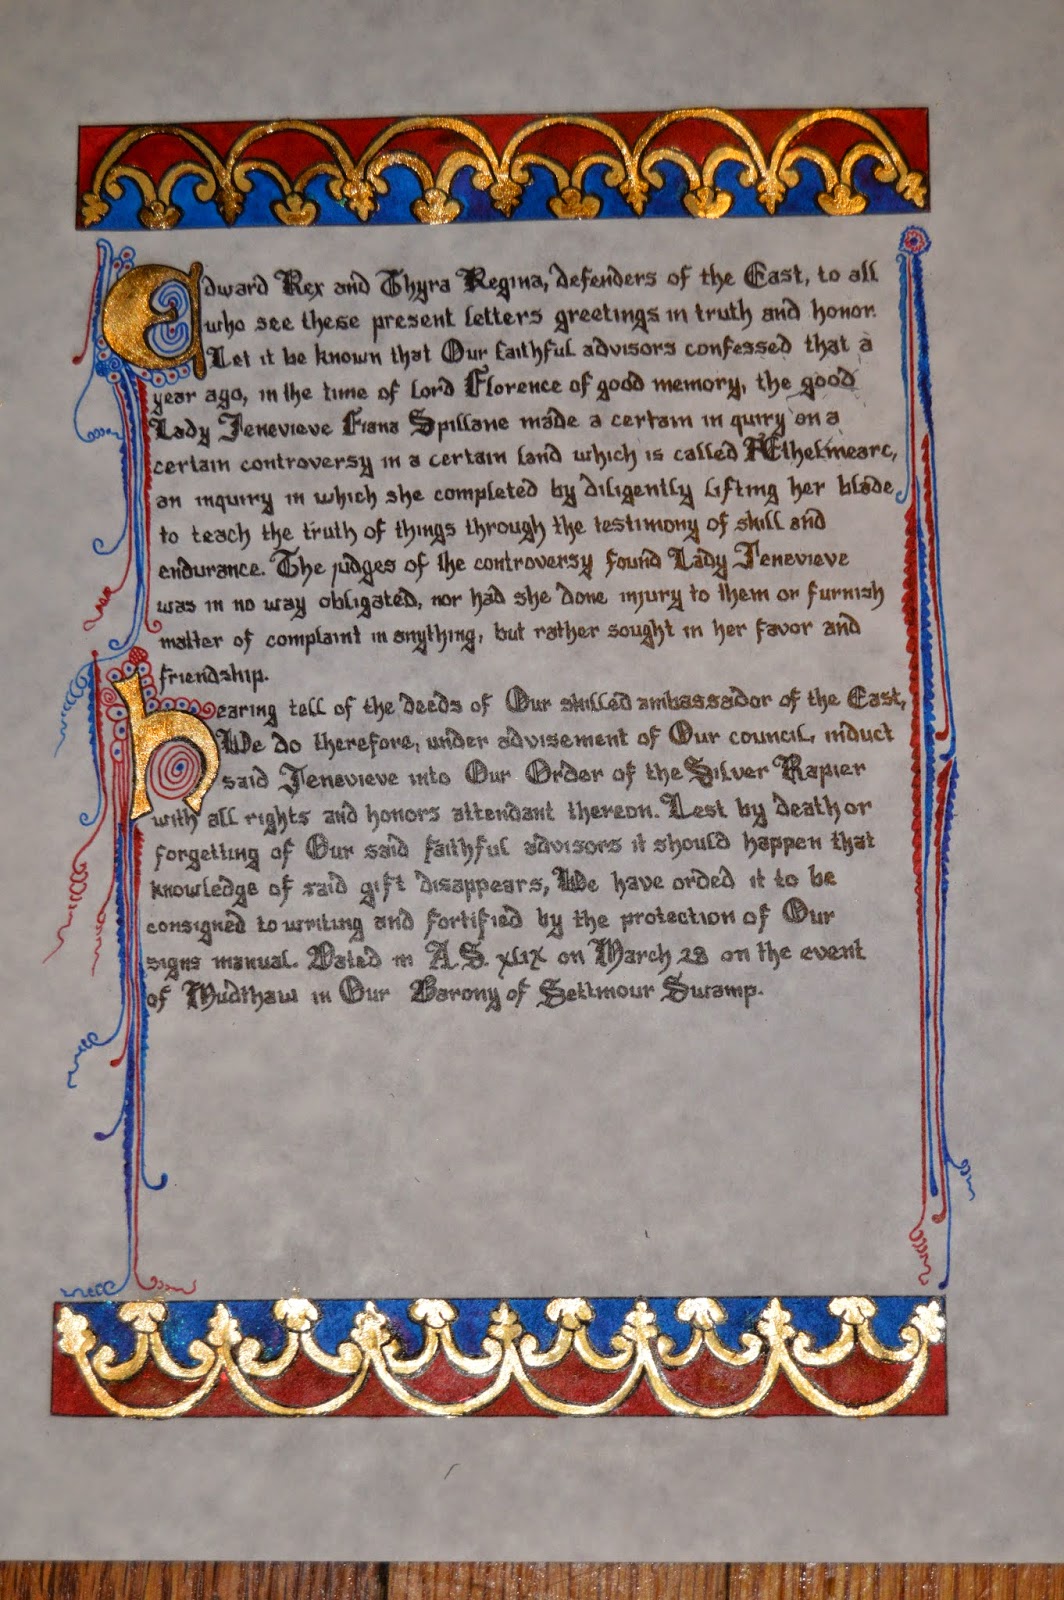 Edward Rex and Thyra Regina, defenders of the East, to all
who see these present letters greetings in truth and honor.
Let it be known that Our faithful advisors confessed that a
year ago, in the time of lord Florence of good memory, the good
Lady Jenevieve Fiana Spillane made a certain in quiry on a
certain controversy in a certain land which is called Æthelmearc,
an inquiry in which she completed by diligently lifting her blade
to teach the truth of things through the testimony of skill and
endurance. The judges of the controversy found Lady Jenevieve
was in no way obligated, nor had she done injury to them or furnish
matter of complaint in anything, but rather sought in her favor and
friendship.
hearing tell of the deeds of Our skilled ambassador of the East,
We do therefore, under advisement of Our council, induct
said Jenevieve into Our Order of the Silver Rapier
with all rights and honors attendant thereon. Lest by death or
forgetting of Our said faithful advisors it should happen that
knowledge of said gift disappears, We have orded it to be
consigned to writing and fortified by the protection of Our
signs manual. Dated in A.S. xlix on March 28 on the event
of Mudthaw in Our Barony of Settmour Swamp.